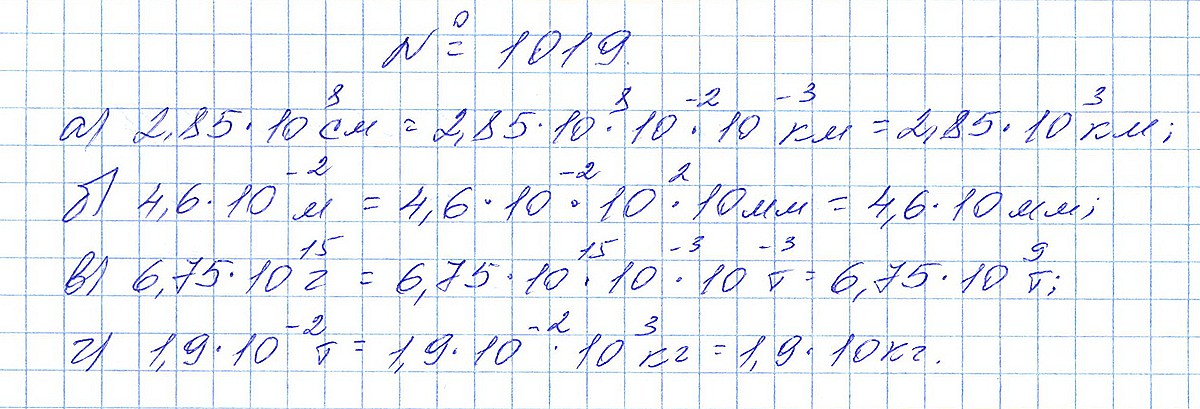 № 1019.
а) 2,85·10⁸ см = 2,85·10⁸·10⁻²·10⁻³ км = 2,85·10³ км;
б) 4,6·10⁻² м = 4,6·10⁻²·10²·10 мм = 4,6·10 мм;
в) 6,75·10¹⁵ г = 6,75·10¹⁵·10⁻³·10⁻³ т = 6,75·10⁹ т;
г) 1,9·10⁻² т = 1,9·10⁻²·10³ кг = 1,9·10 кг.